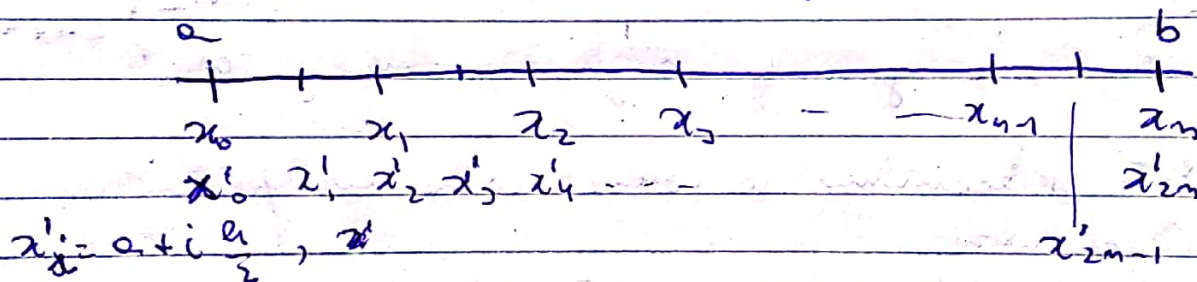 a b
x₀ x₁ x₂ x₃ - — xₙ₋₁ xₙ
x'₀ x'₁ x'₂ x'₃ x'₄ - - - x'₂ₙ
x'ᵢ = a + i h/2 , x' x'₂ₙ₋₁